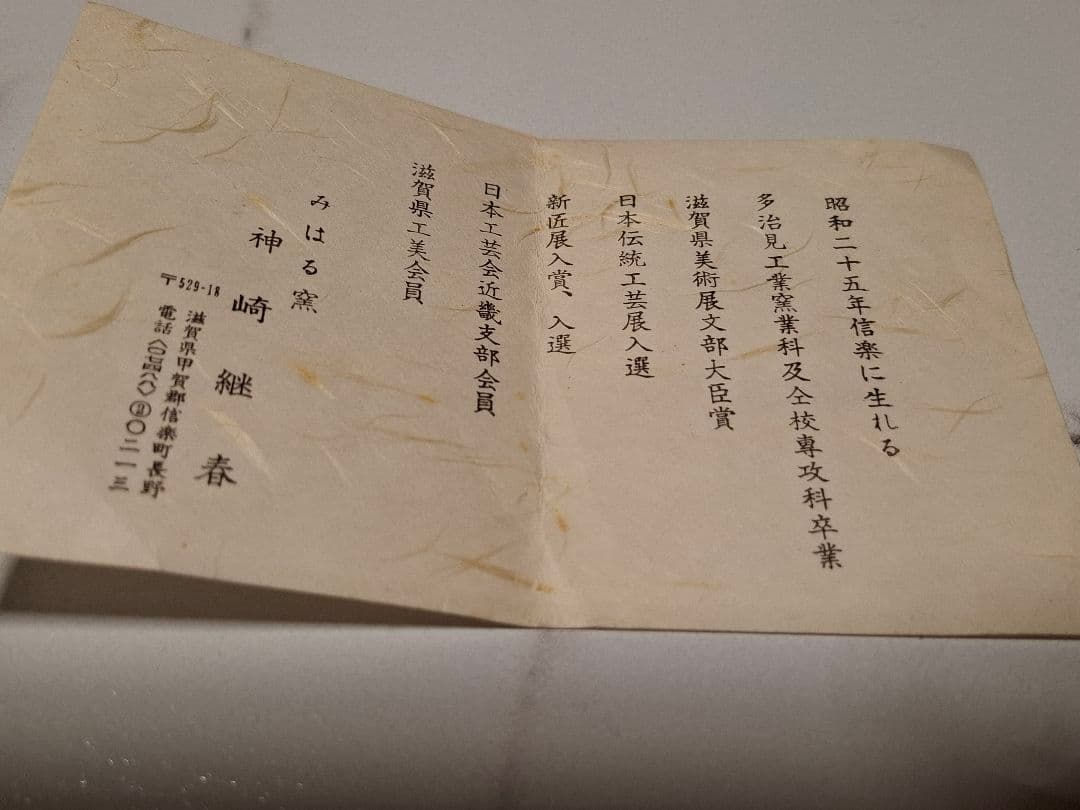 昭和二十五年信楽に生れる
多治見工業窯業科及仝校専攻科卒業
滋賀県美術展文部大臣賞
日本伝統工芸展入選
新匠展入賞、入選
日本工芸会近畿支部会員
滋賀県工美会員
みはる窯
神崎継春
〒529-18
滋賀県甲賀郡信楽町長野
電話〈〇七四八〉㊁〇二一三